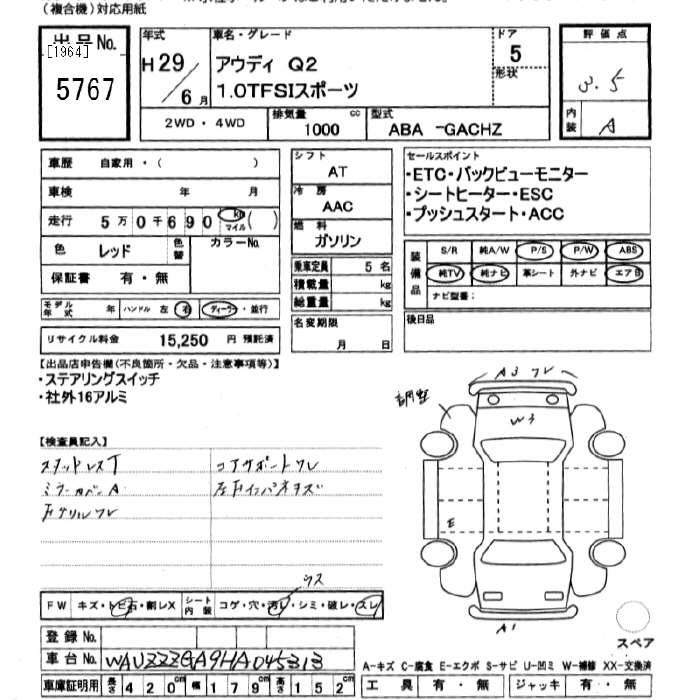 (複合機)対応用紙
出品No.
[1964]
5767
年式
H29
6月
車名・グレード
アウディ Q2
1.0TFSIスポーツ
ドア
5
形状
評価点
3.5
内装
A
2WD・4WD
排気量
1000
cc
型式
ABA -GACHZ
車歴 自家用・( )
車検 年 月
走行 5万0千690 km マイル ( )
色 レッド 色替 カラーNo.
保証書 有・無
モデル年式 年 ハンドル 左 右 ディーラー・並行
リサイクル料金 15,250 円 預託済
シフト
AT
冷房
AAC
燃料
ガソリン
乗車定員 5名
積載量 kg
総重量 kg
名変期限
月 日
セールスポイント
・ETC・バックビューモニター
・シートヒーター・ESC
・プッシュスタート・ACC
装備品
S/R 純A/W P/S P/W ABS
純TV 純ナビ 革シート 外ナビ エアB
ナビ型番:
後日品
【出品店申告欄(不良箇所・欠品・注意事項等)】
・ステアリングスイッチ
・社外16アルミ
【検査員記入】
スタッドレスT
ミラーカバーA
コアサポートワレ
A3 ワレ
調整
W3
E
A1
ウス
FW キズ・トビ石・割レX
シート内装 コゲ・穴・汚レ・シミ・破レ・スレ
登録No.
車台No. WAUZZZGA9HA045313
車庫証明用 長さ 420cm 幅 179cm 高さ 152cm
スペア
A-キズ C-腐食 E-エクボ S-サビ U-凹ミ W-補修 XX-交換済
工具 有・無 ジャッキ 有・無